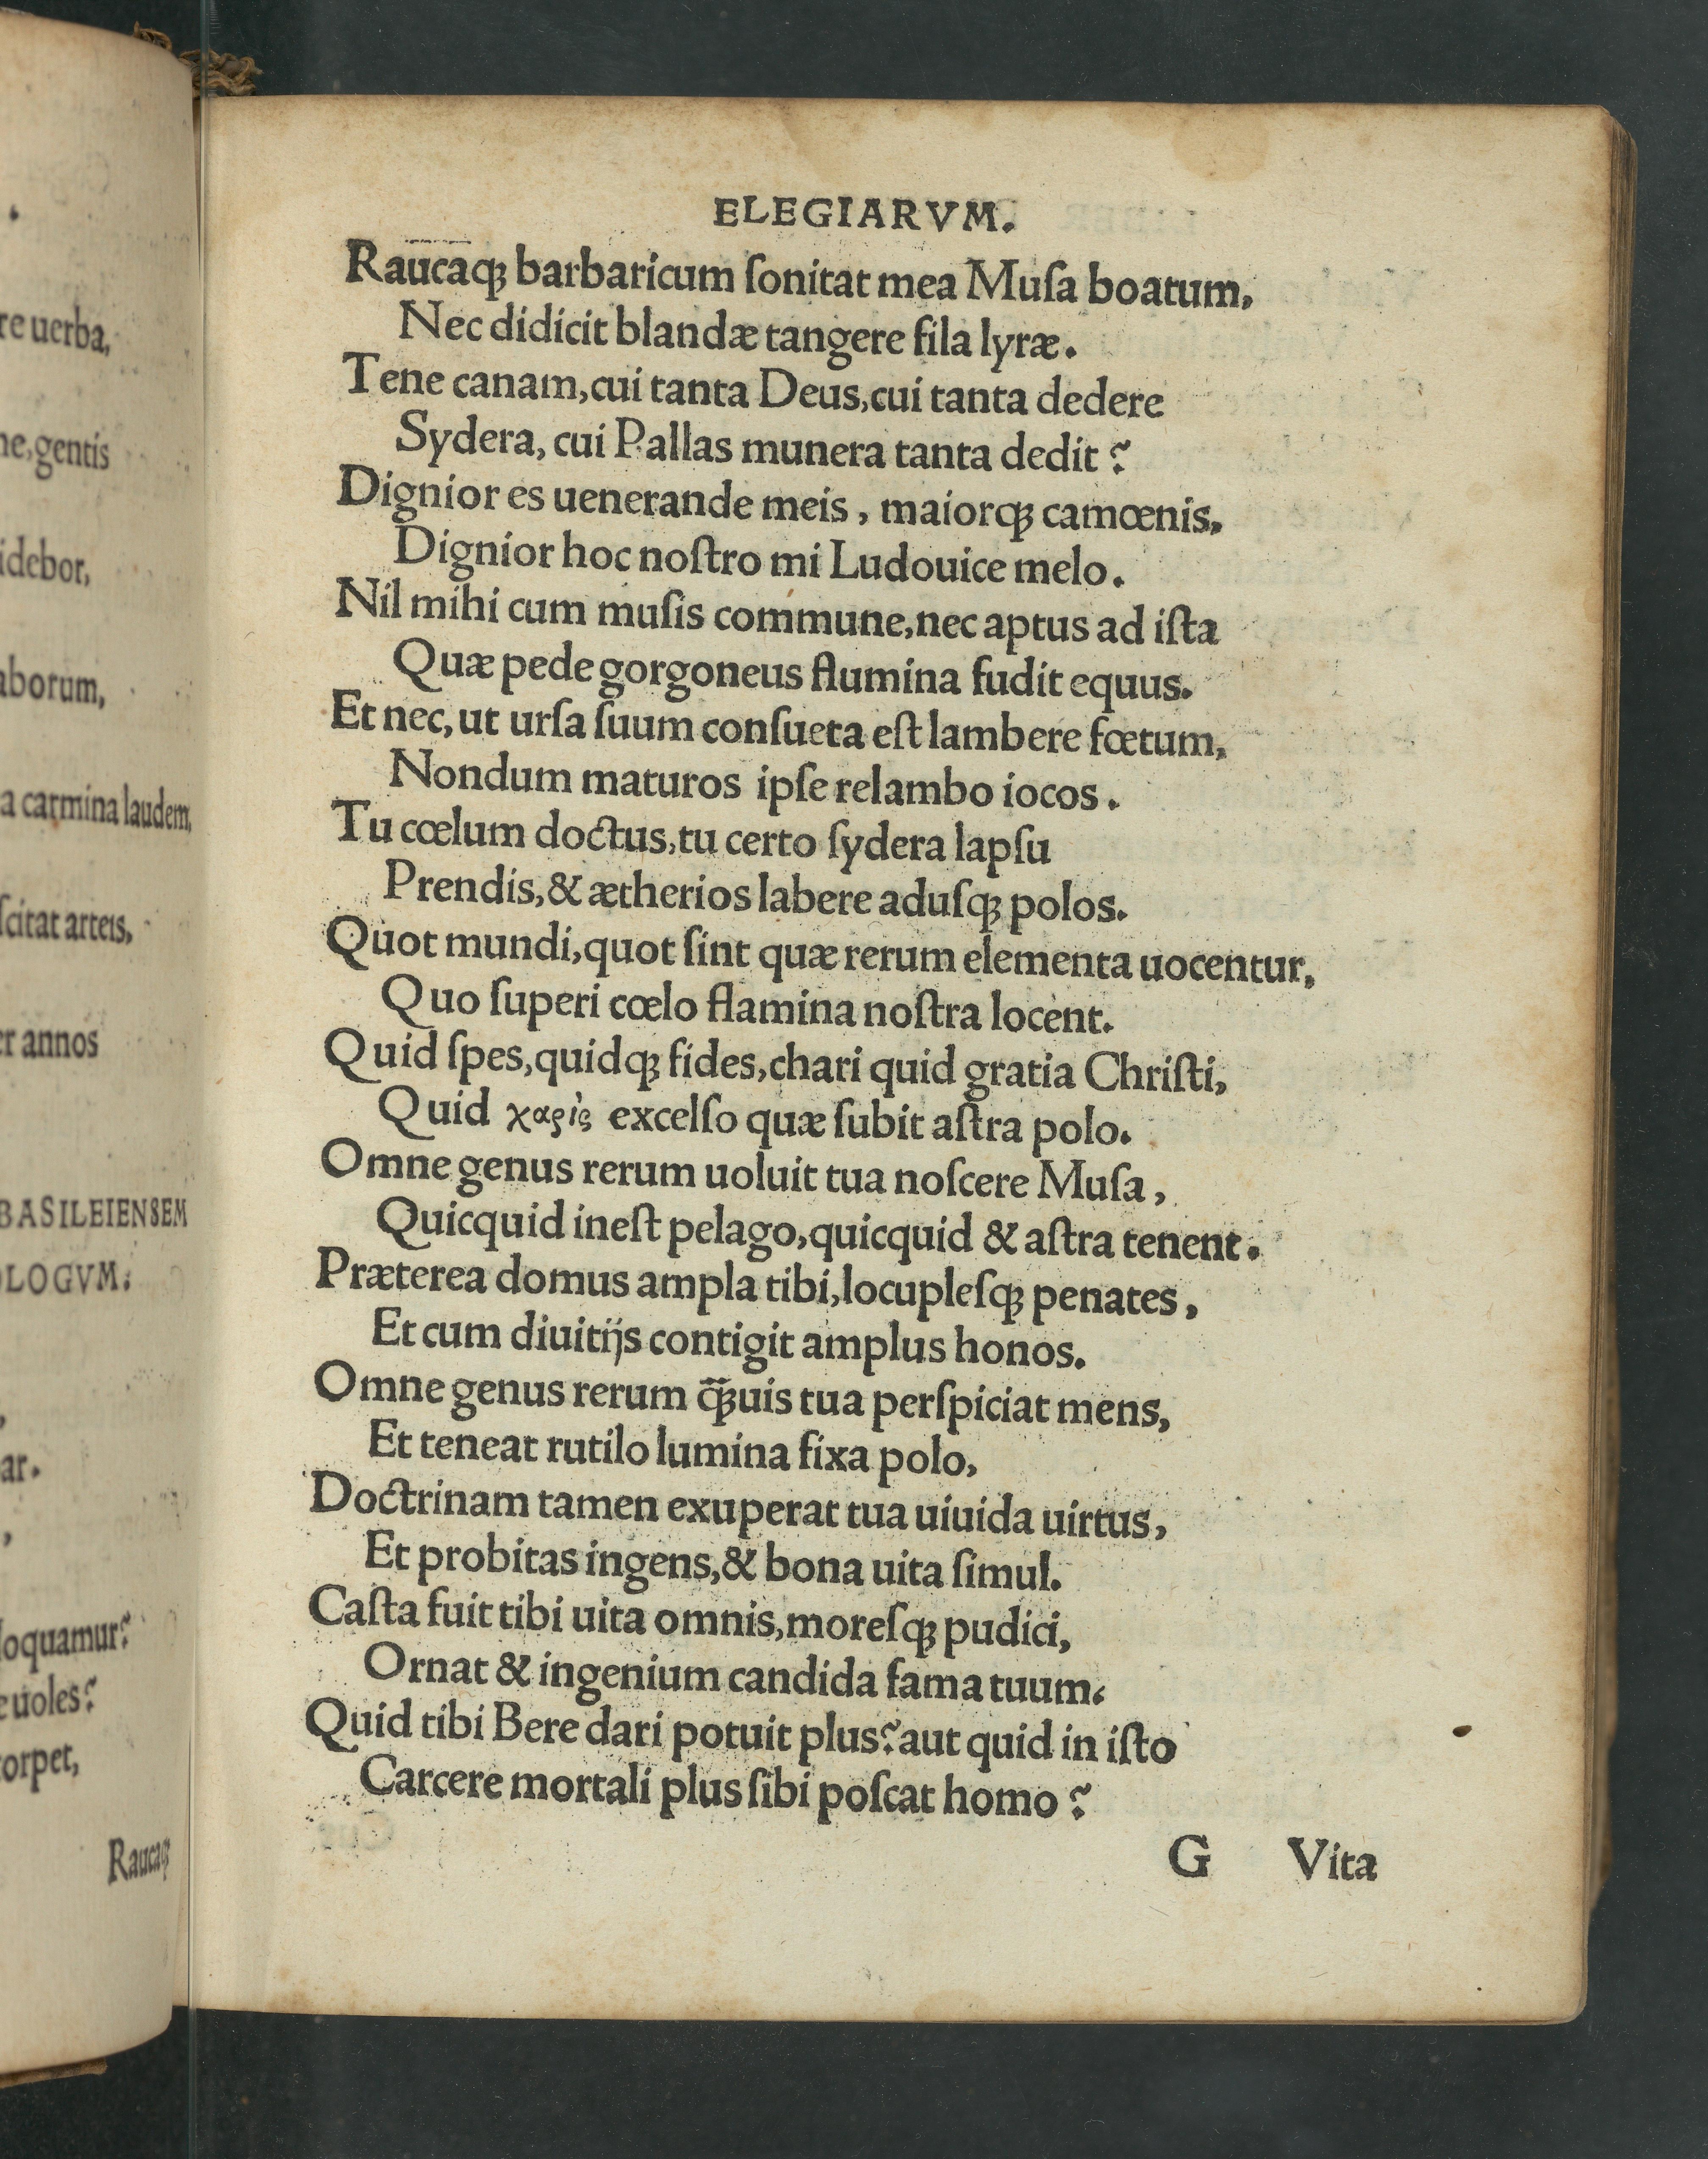 re uerba,
ne, gentis
idebor,
aborum,
a carmina laudem,
ſcitat arteis,
er annos
BASILEIENSEM
OLOGVM.
ar.
loquamur?
e uoles?
torpet,
Raucaq;
ELEGIARVM.
Raucaq; barbaricum ſonitat mea Muſa boatum,
Nec didicit blandæ tangere fila lyræ.
Tene canam, cui tanta Deus, cui tanta dedere
Sydera, cui Pallas munera tanta dedit?
Dignior es uenerande meis, maiorq; camœnis,
Dignior hoc noſtro mi Ludouice melo.
Nil mihi cum muſis commune, nec aptus ad iſta
Quæ pede gorgoneus flumina fudit equus.
Et nec, ut urſa ſuum conſueta eſt lambere fœtum,
Nondum maturos ipſe relambo iocos.
Tu cœlum doctus, tu certo ſydera lapſu
Prendis, & ætherios labere aduſq; polos.
Quot mundi, quot ſint quæ rerum elementa uocentur,
Quo ſuperi cœlo flamina noſtra locent.
Quid ſpes, quidq; fides, chari quid gratia Chriſti,
Quid χαρὶς excelſo quæ ſubit aſtra polo.
Omne genus rerum uoluit tua noſcere Muſa,
Quicquid ineſt pelago, quicquid & aſtra tenent.
Præterea domus ampla tibi, locupleſq; penates,
Et cum diuitijs contigit amplus honos.
Omne genus rerum q̃uis tua perſpiciat mens,
Et teneat rutilo lumina fixa polo,
Doctrinam tamen exuperat tua uiuida uirtus,
Et probitas ingens, & bona uita ſimul.
Caſta fuit tibi uita omnis, moreſq; pudici,
Ornat & ingenium candida fama tuum.
Quid tibi Bere dari potuit plus? aut quid in iſto
Carcere mortali plus ſibi poſcat homo?
G Vita